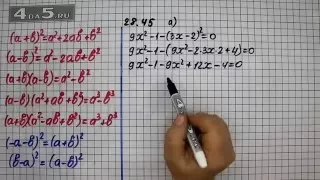 4DA5.RU
(a+b)²=a²+2ab+b²
(a-b)²=a²-2ab+b²
(a+b)(a-b)=a²-b²
(a-b)(a²+ab+b²)=a³-b³
(a+b)(a²-ab+b²)=a³+b³
(-a-b)²=(a+b)²
(b-a)²=(a-b)²
28.45 а)
9x²-1-(3x-2)²=0
9x²-1-(9x²-2·3x·2+4)=0
9x²-1-9x²+12x-4=0